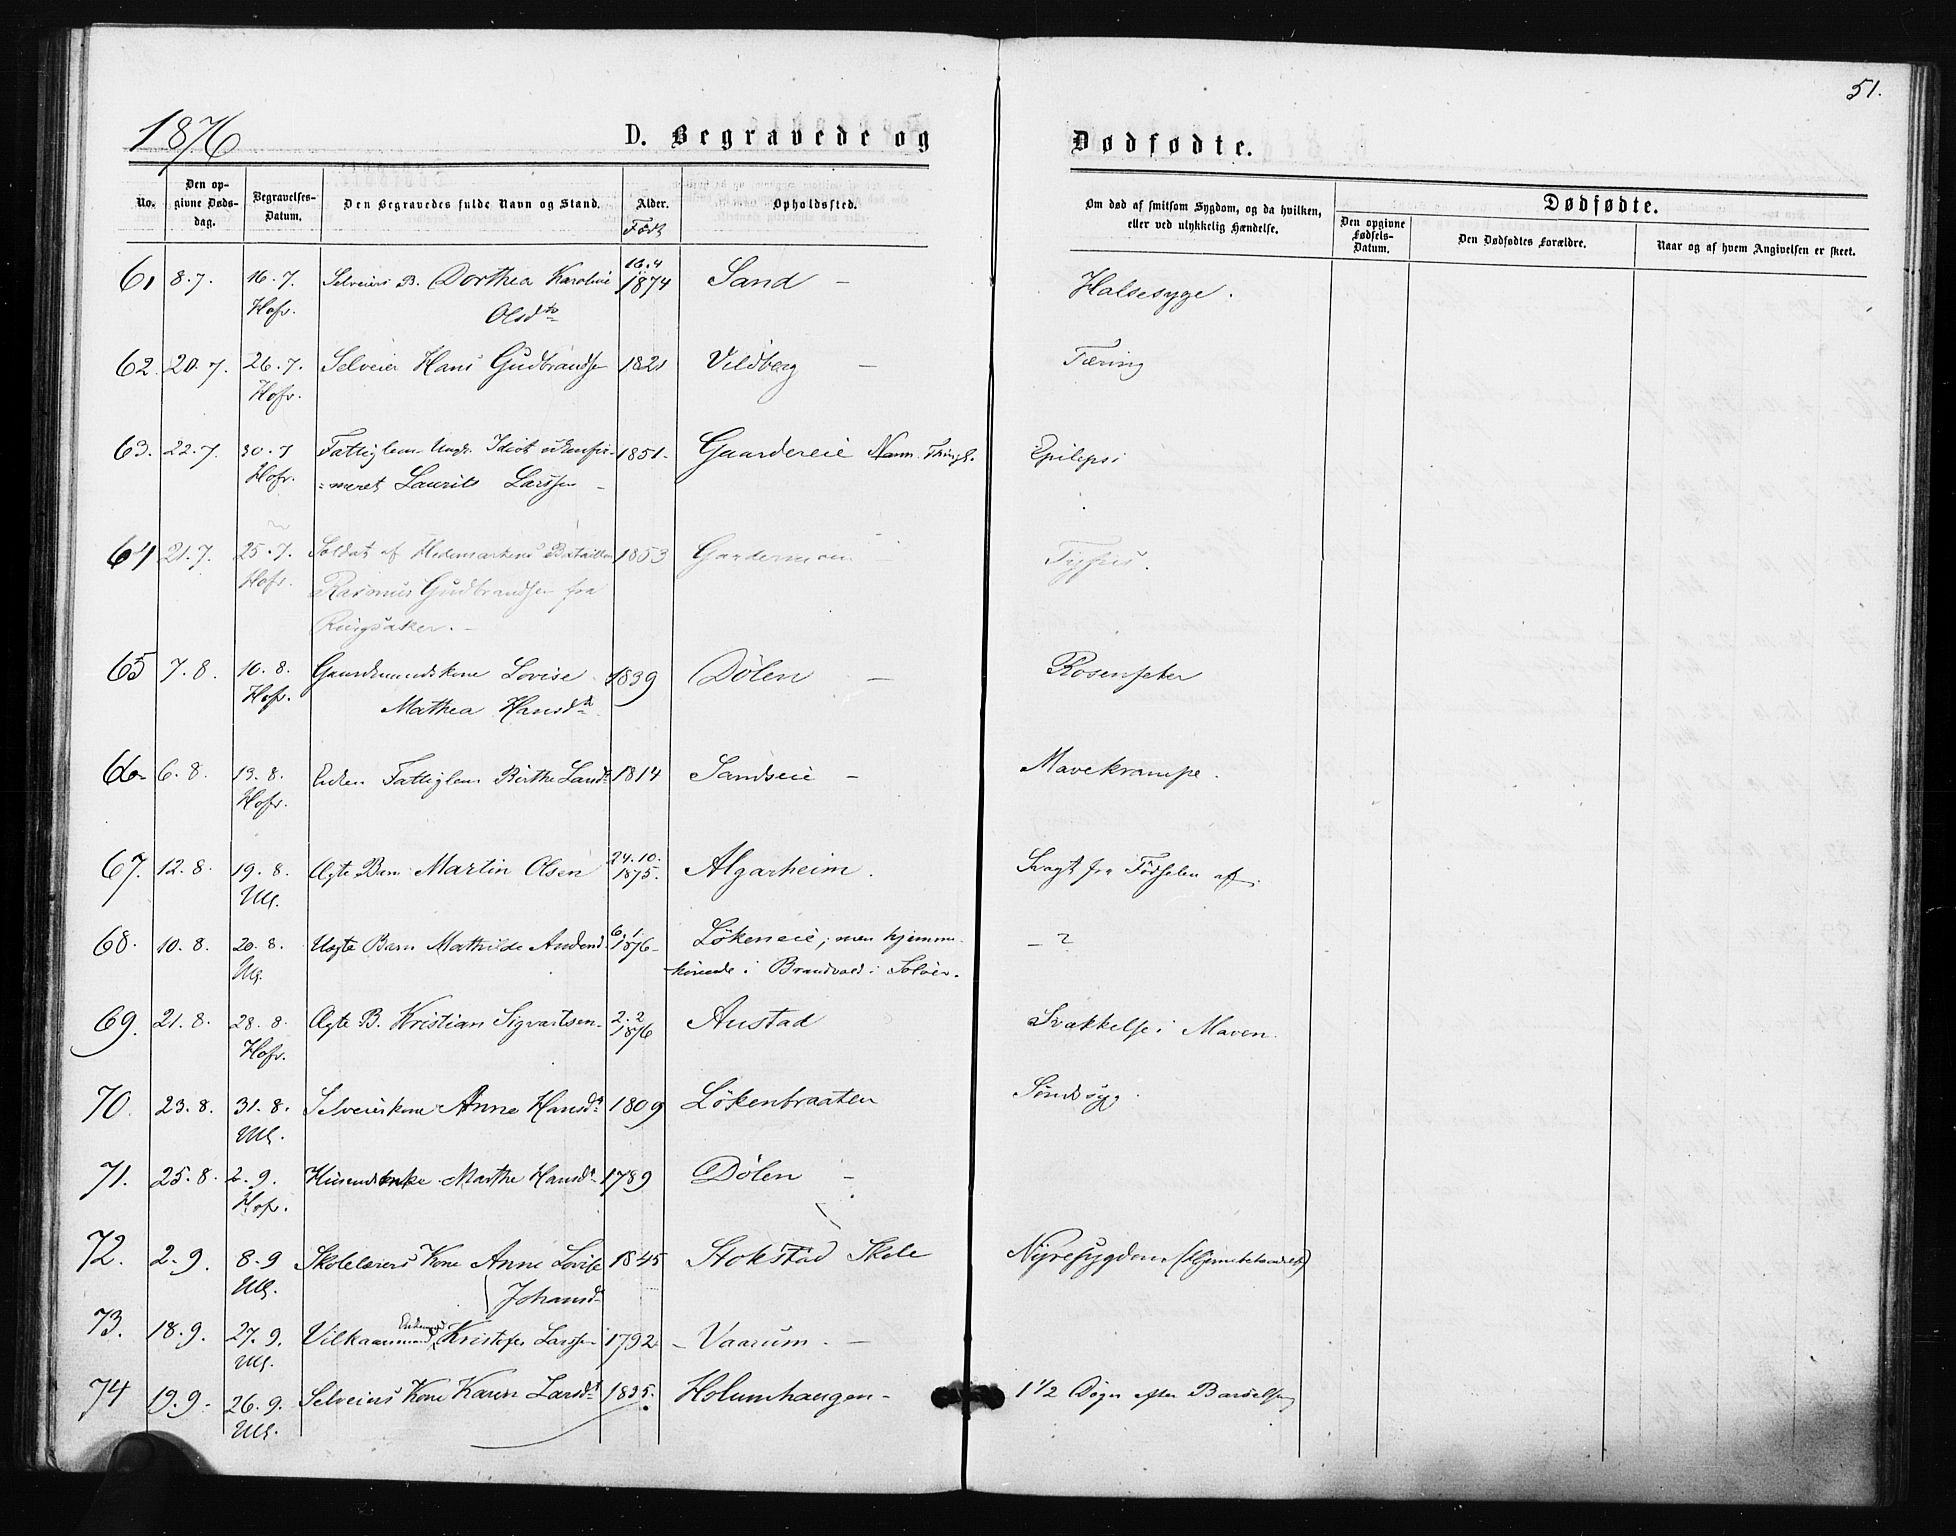 51.
1876
D. Begravede og Dødfødte.
No.
Den opgivne Dødsdag.
Begravelses-Datum.
Den Begravedes fulde Navn og Stand.
Alder.
Født
Opholdssted.
Om død af smitsom Sygdom, og da hvilken, eller ved ulykkelig Hændelse.
Dødfødte.
Den opgivne Fødsels-Datum.
Den Dødfødtes Forældre.
Naar og af hvem Angivelsen er skeet.
61 8.7. 16.7. Selveiers B. Dorthea Karoline 16.4 1874 Sand – Halsesyge.
Hofv. Olsdtr
62. 20.7. 26.7. Selveier Hans Gudbrandsen 1821 Vildberg – Tæring
Hofv.
63. 22.7. 30.7 Fattiglem Ungk. Idiot ukonfir- 1851. Gaardereie Nann. Epilepsi
Hofv. =meret Laurits Larssen –
64 21.7. 25.7. Soldat af Hedemarkens Bataillon 1853 Gardermoen – Tyfus.
Hofv. Rasmus Gudbrandsen fra
Ringsaker. –
65 7.8. 10.8. Gaardmandskone Lovise 1839 Dølen – Rosenfeber
Hofv. Mathea Hansdt.
66. 6.8. 13.8. Enken Fattiglem Birthe Larsd. 1814 Sandseie – Mavekrampe.
Hofv.
67. 12.8. 19.8. Ægte Barn Martin Olsen 24.10. 1875. Algarheim. Svagt fra Fødselen af.
Ull.
68. 10.8. 20.8. Uægte Barn Mathilde Andersd. 6.1 1876 – Løkeneie, men hjemme- – ?
Ull. hørende i Brandvold i Solør.
69. 21.8. 28.8. Ægte B. Kristian Sigvartsen. 2.2 1876 Austad Svækkelse i Maven.
Hofv.
70. 23.8. 31.8. Selveierkone Anne Hansdt. 1809 Løkenbraaten Sindssyg.
Ull.
71. 25.8. 2.9. Husmdsenke Marthe Hansdt. 1789 Dølen –
Hofv.
72. 2.9. 8.9 Skolelærers Kone Anne Lovise 1845 Stokstad Skole Nyresygdom
Ull. Johansd.
73. 18.9. 27.9. Vilkaarsmand Kristofer Larssen 1792 – Vaarum. –
Ull.
74 19.9. 26.9. Selveiers Kone Karen Larsdt. 1835. Holumhaugen – 1 1/2 Døgn efter Barselseng
Ull.